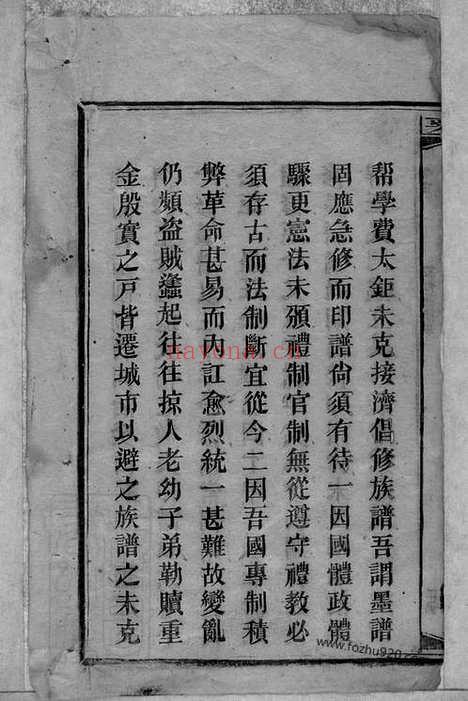 帮學費太鉅未克接濟倡修族譜吾謂墨譜
固應急修而印譜尙須有待一因國體政體
驟更憲法未頒禮制官制無從遵守禮教必
須存古而法制斷宜從今二因吾國專制積
弊革命甚易而內訌愈烈統一甚難故變亂
仍頻盜賊蠭起往往掠人老幼子弟勒贖重
金殷實之戸皆遷城市以避之族譜之未克
nayona.cn
www.fozhu920.com